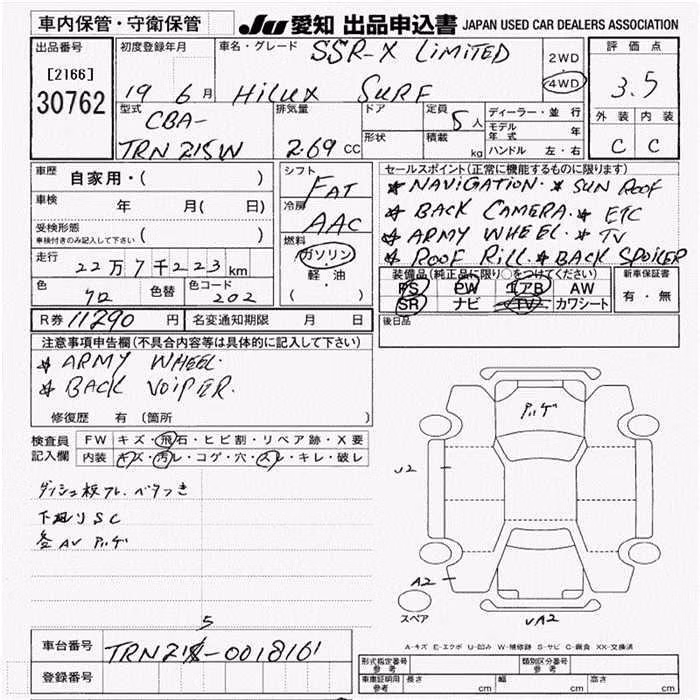 車内保管・守衛保管 JU 愛知 出品申込書 JAPAN USED CAR DEALERS ASSOCIATION
出品番号
[2166]
30762
初度登録年月
19 6 月
車名・グレード SSR-X LiMiTED
HiLUX SURF
2WD
・
4WD
評価点
3.5
外装 内装
C C
型式 CBA-
TRN 215W
排気量
2.69 CC
ドア
形状
定員 5 人
積載 kg
ディーラー・並行
モデル年式 年
ハンドル 左・右
車歴 自家用・( )
車検 年 月( 日)
受検形態
車検付きのみ記入して下さい ( )
走行 22万7千223 km
色 クロ 色替 色コード 202
シフト FAT
冷房 AAC
燃料
ガソリン
・
軽・油
( )
セールスポイント(正常に機能するものに限ります)
★ NAViGATiON. ★ SUN ROOF
★ BACK CAMERA. ★ ETC
★ ARMY WHEEL. ★ TV
★ ROOF RiLL. ★ BACK SPOiLER
装備品(純正品に限り○をつけてください)
PS PW エアB AW
SR ナビ TV カワシート
新車保証書
有・無
R券 11290 円 名変通知期限 月 日
後日品
注意事項申告欄(不具合内容等は具体的に記入して下さい)
★ ARMY WHEEL.
★ BACK VOiPER.
修復歴 有 (箇所 )
検査員
記入欄
FW キズ・飛石・ヒビ割・リペア跡・X要
内装 キズ・汚レ・コゲ・穴・スレ・キレ・破レ
ダッシュ板フレ. ベタつき
下廻りSC
各AV アゲ
アゲ
U2
A2
√A2
スペア
A-キズ E-エクボ U-凹み W-補修跡 S-サビ C-腐食 XX-交換済
車台番号 TRN21X-0018161
5
登録番号
形式指定番号
参考
類別区分番号
参考
車庫証明用
参考
長さ cm 幅 cm 高さ cm